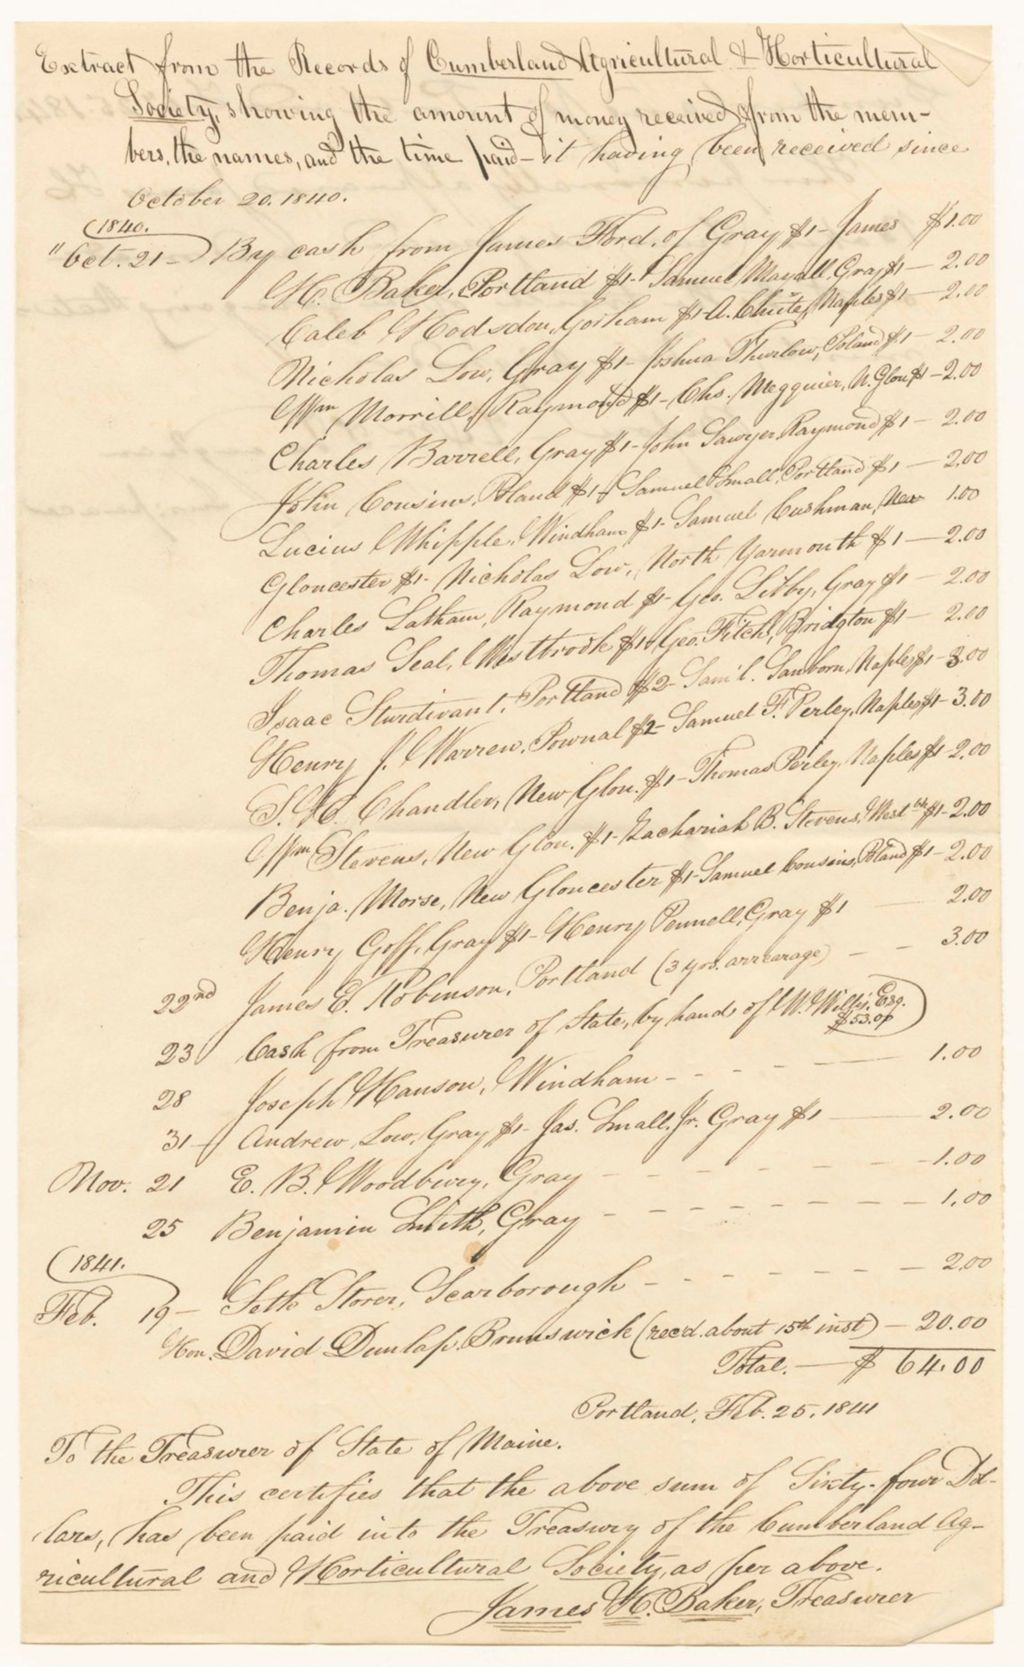 Extract from the Records of Cumberland Agricultural & Horticultural
Society, showing the amount of money received from the mem-
bers, the names, and the time paid - it having been received since
October 20. 1840.
1840.
" Oct. 21 - By cash from James Ford, of Gray $1 - James $1.00
H. Baker, Portland $1 - Samuel Mayall, Gray $1 - 2.00
Caleb Hodsdon, Gorham $1 - A. Chute, Naples $1 - 2.00
Nicholas Low, Gray $1 - Joshua Thurlow, Poland $1 - 2.00
Wm Morrill, Raymond $1 - Chs. Megquier, N. Glou $1 - 2.00
Charles Barrell, Gray $1 - John Sawyer, Raymond $1 - 2.00
John Cousins, Poland $1 - Samuel Small, Portland $1 - 2.00
Lucius Whipple, Windham $1 - Samuel Cushman, New 1.00
Gloucester $1 - Nicholas Low, North Yarmouth $1 - 2.00
Charles Latham, Raymond $1 - Geo. Libby, Gray $1 - 2.00
Thomas Seal, Westbrook $1 - Geo. Fitch, Bridgton $1 - 2.00
Isaac Sturdivant, Portland $2 - Sam'l. Sanborn, Naples $1 - 3.00
Henry J. Warren, Pownal $2 - Samuel F. Perley, Naples $1 - 3.00
S. H. Chandler, New Glou. $1 - Thomas Perley, Naples $1 - 2.00
Wm Stevens, New Glou. $1 - Zachariah B. Stevens, West bk $1 - 2.00
Benja. Morse, New Gloucester $1 - Samuel Cousins, Poland $1 - 2.00
Henry Goff, Gray $1 - Henry Pennell, Gray $1 - 2.00
22nd James E. Robinson, Portland (3 yrs. arrearage) - 3.00
23 Cash from Treasurer of State, by hand of W. Willis, Esq. $53.00
28 Joseph Hanson, Windham - - - - 1.00
31 - Andrew Low, Gray $1 - Jas. Small, Jr. Gray $1 - 2.00
Nov. 21 E. B. Woodbury, Gray - - - - 1.00
25 Benjamin Smith, Gray - - - - 1.00
1841.
Feb. 19 - Seth Storer, Scarborough - - - - 2.00
Hon. David Dunlap, Brunswick (rec'd. about 15th inst) - 20.00
Total. - $ 64.00
Portland, Feb. 25. 1841
To the Treasurer of State of Maine.
This certifies that the above sum of Sixty-four Dol-
lars, has been paid into the Treasury of the Cumberland Ag-
ricultural and Horticultural Society, as per above.
James H. Baker, Treasurer